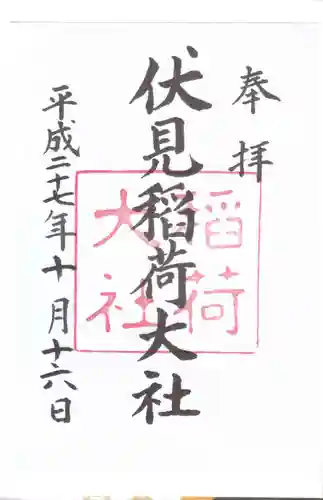 奉拝
伏見稲荷大社
平成二十七年十月十六日
稲荷
大社